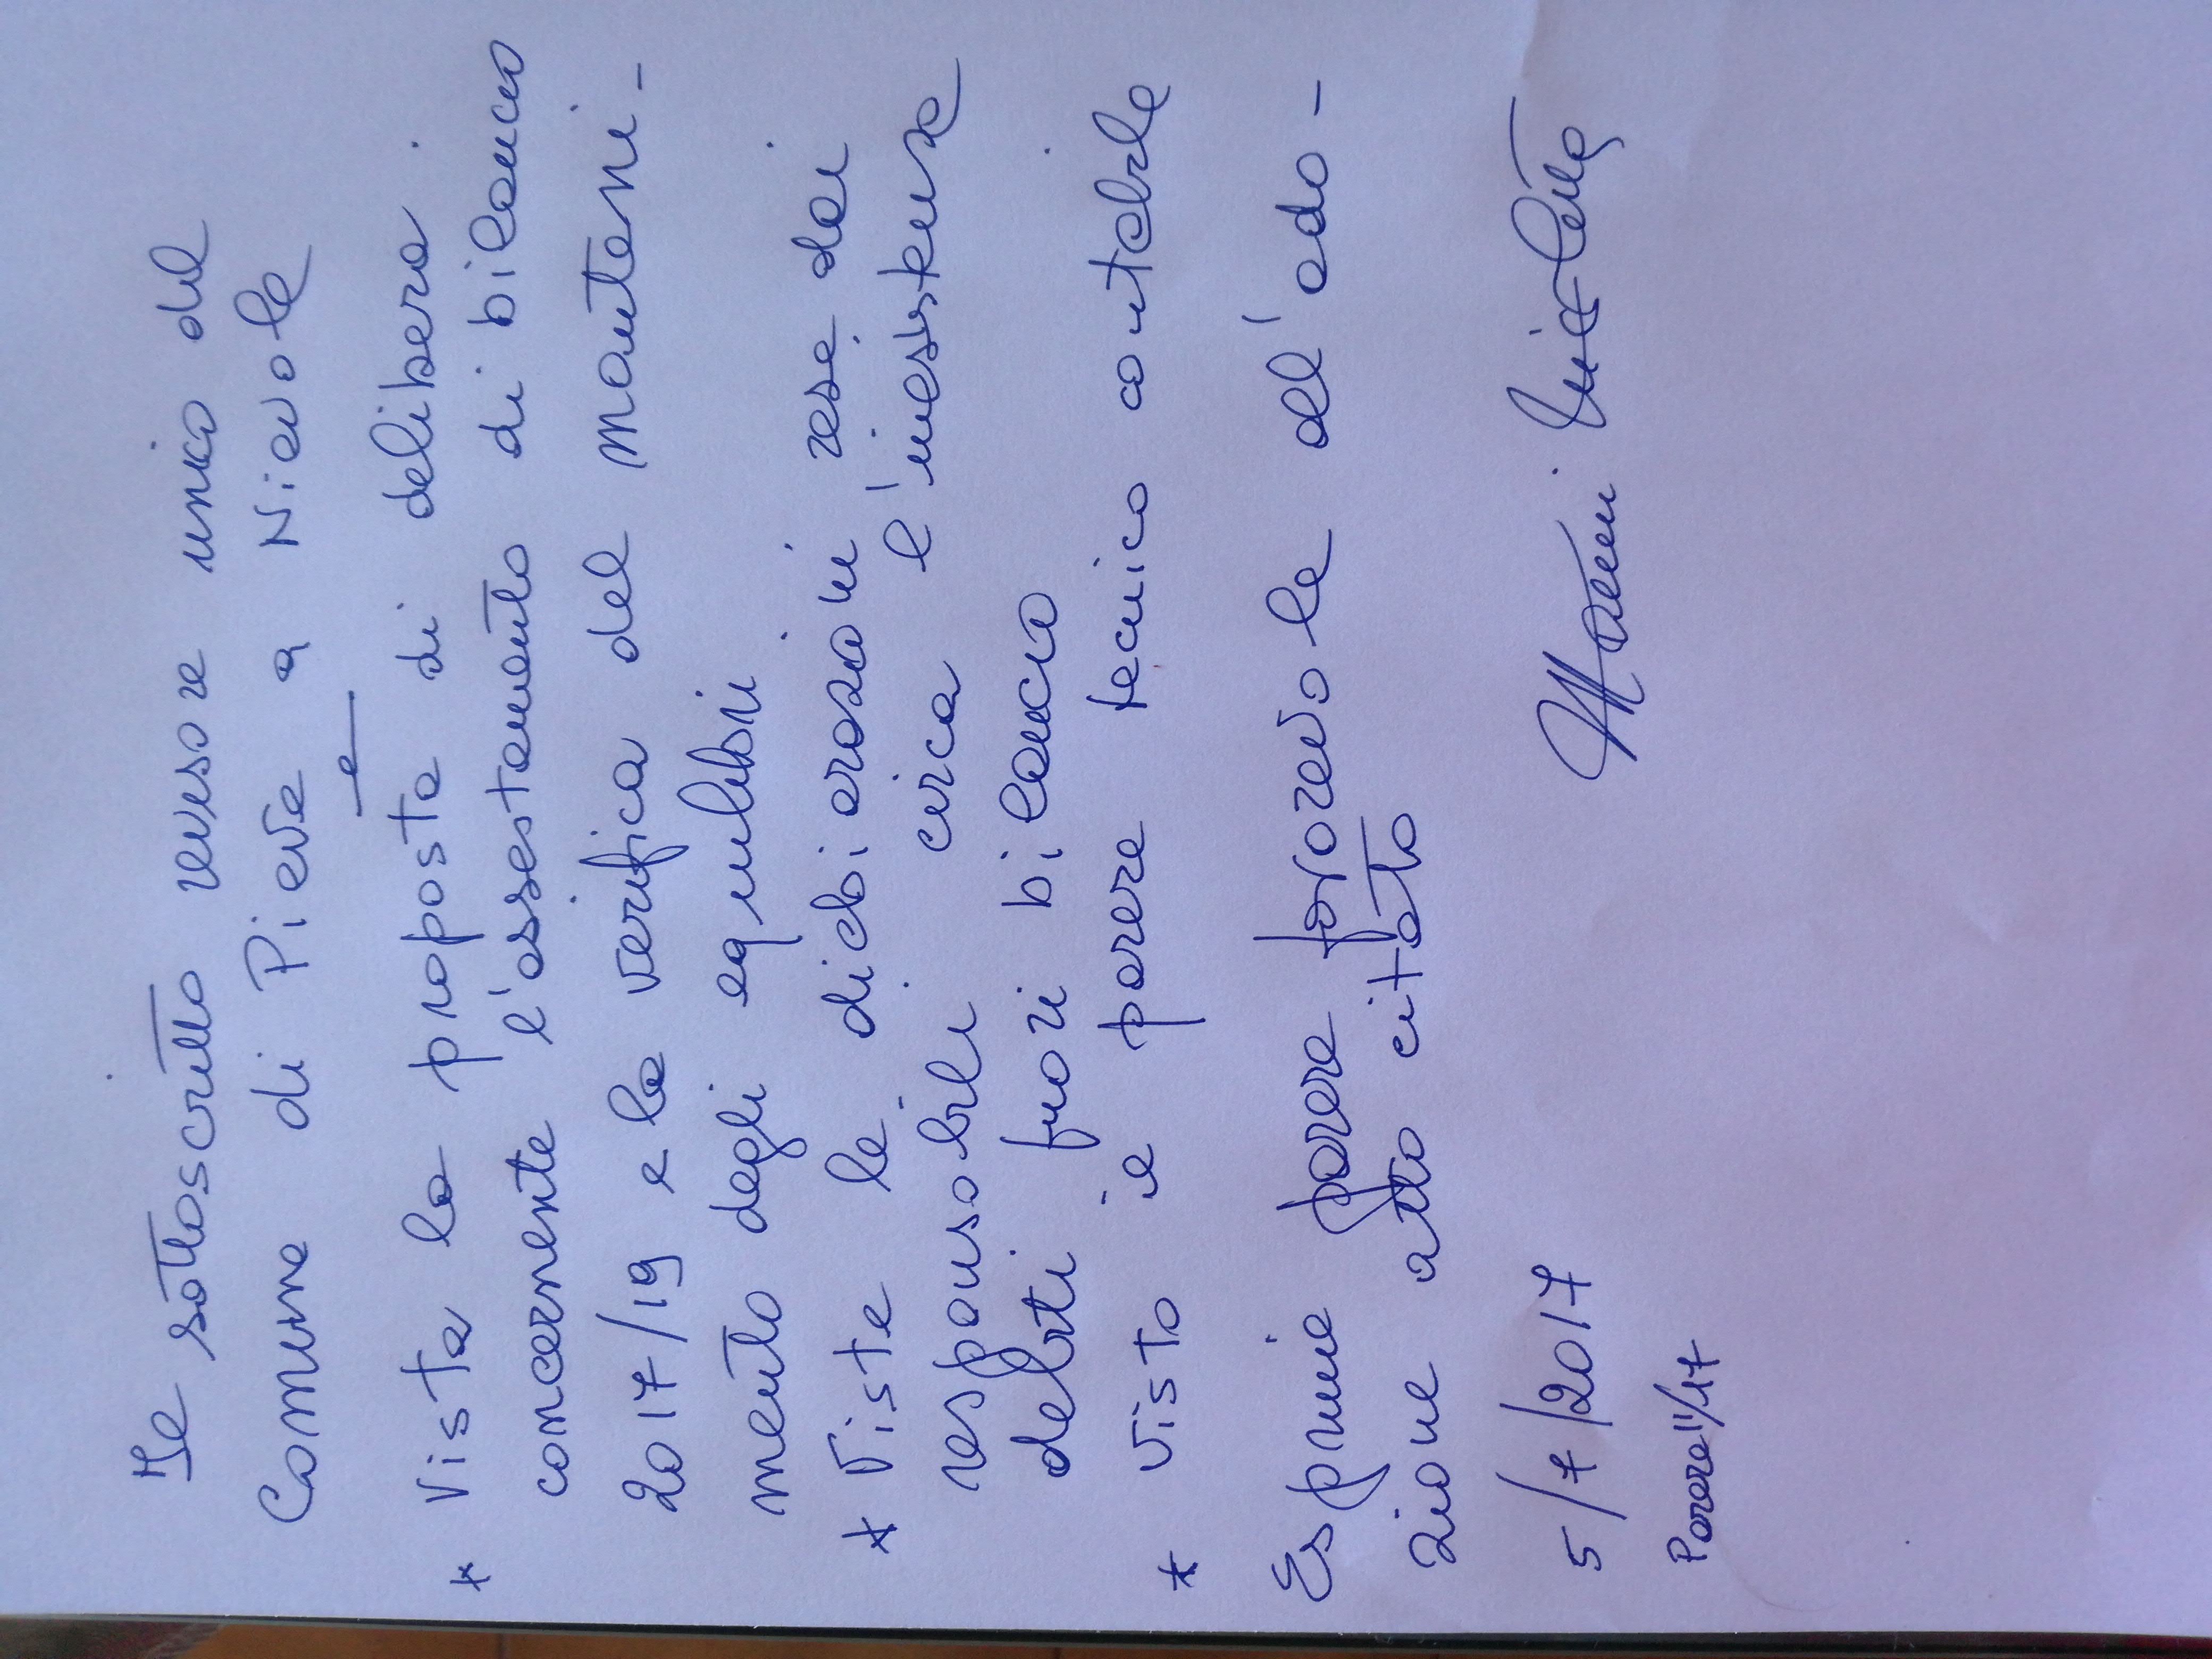 Il sottoscritto revisore unico del
Comune di Pieve a Nievole
* Vista la proposta di delibera
concernente l'assestamento di bilancio
2017/19 e la verifica del manteni-
mento degli equilibri
* Viste le dichiarazioni rese dai
responsabili circa l'inesistenza
debiti fuori bilancio
* Visto il parere tecnico contabile
Esprime parere favorevole all'ado-
zione atto citato
5/7/2017
Parere 11/17